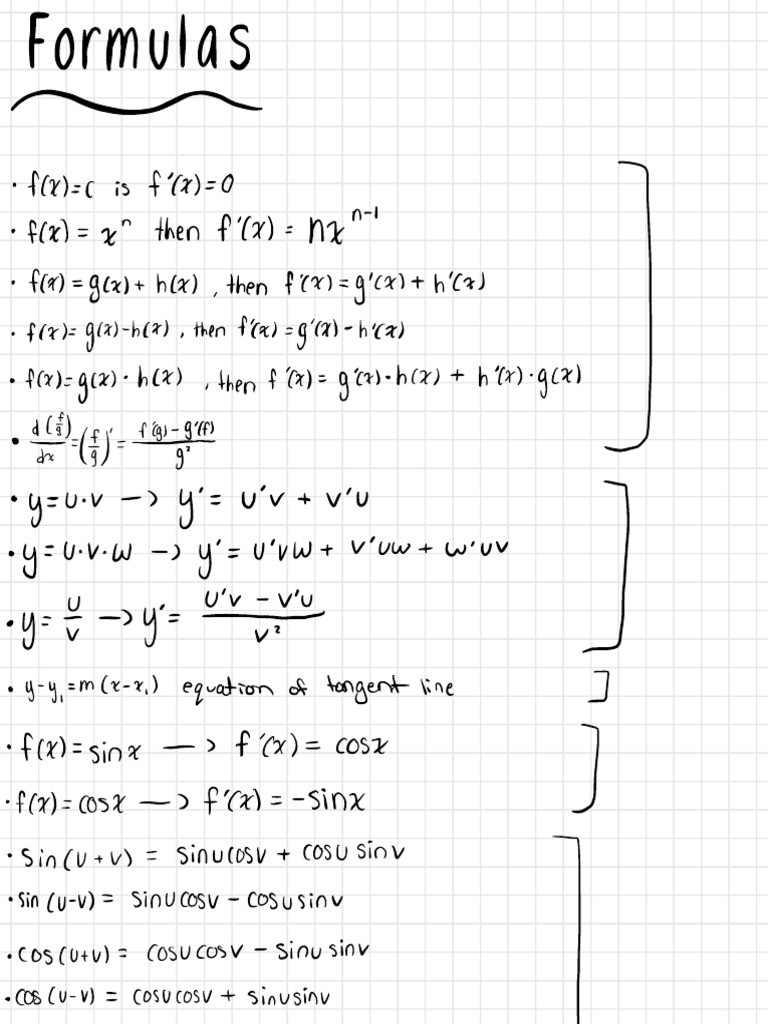 Formulas
• f(x)=c is f'(x)=0
• f(x) = xⁿ then f'(x) = nxⁿ⁻¹
• f(x) = g(x) + h(x), then f'(x) = g'(x) + h'(x)
• f(x) = g(x) - h(x), then f'(x) = g'(x) - h'(x)
• f(x) = g(x) · h(x), then f'(x) = g'(x) · h(x) + h'(x) · g(x)
• d(f/g)/dx = (f/g)' = f'(g) - g'(f) / g²
• y = u·v —> y' = u'v + v'u
• y = u·v·w —> y' = u'vw + v'uw + w'uv
• y = u/v —> y' = u'v - v'u / v²
• y - y₁ = m(x - x₁) equation of tangent line
• f(x) = sinx —> f'(x) = cosx
• f(x) = cosx —> f'(x) = -sinx
• sin(u+v) = sinucosv + cosu sinv
• sin(u-v) = sinucosv - cosusinv
• cos(u+v) = cosucosv - sinu sinv
• cos(u-v) = cosucosv + sinusinv